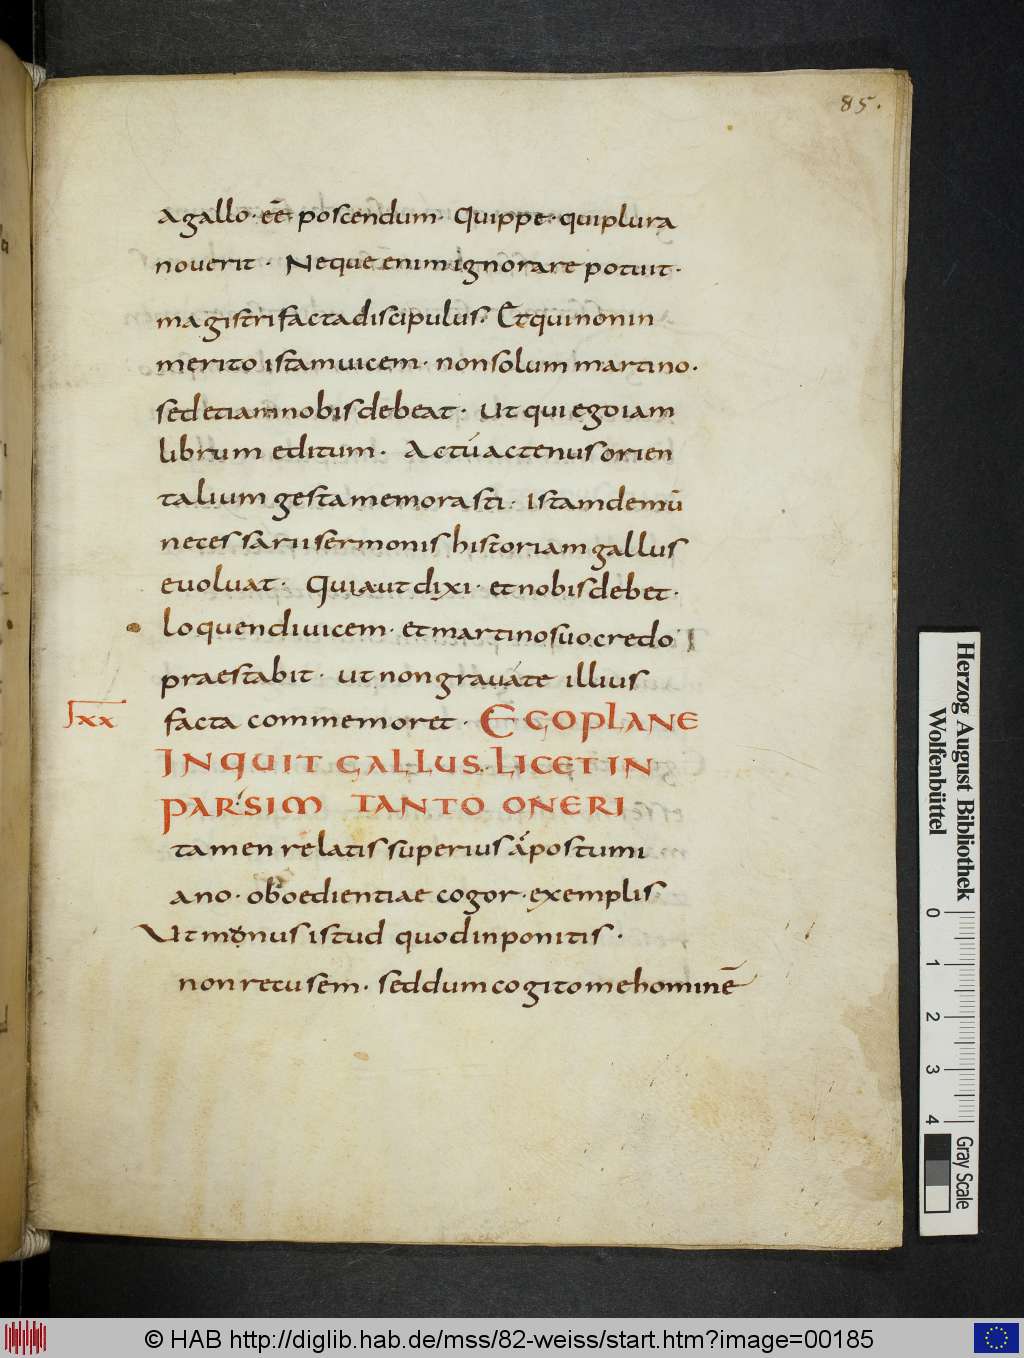 85.
agallo· eē· poscendum· Quippe· quiplura
noverit· Neque enim ignorare potuit·
magistri facta discipulus· Et qui non in
merito istam vicem· non solum martino·
sed etiam nobis debeat· Ut qui ego iam
librum editum· Actú actenus orien
talium gesta memorasti· Istam demū
netessarii sermonis historiam gallus
evoluat· Qui aut dixi· et nobis debet·
loquendi vicem· et martino suo credo
praestabit· ut non gravate illius
facta commemoret· EGO PLANE
lxx
INQUIT GALLUS· LICET IN
PAR·SIM TANTO ONERI
tamen relatis superius a postumi
ano· oboedientiae cogor· exemplis
Ut monus istud quod inponitis·
non recusem· sed dum cogito me hominē
Herzog August Bibliothek
Wolfenbüttel
0 1 2 3 4
Gray Scale
© HAB http://diglib.hab.de/mss/82-weiss/start.htm?image=00185